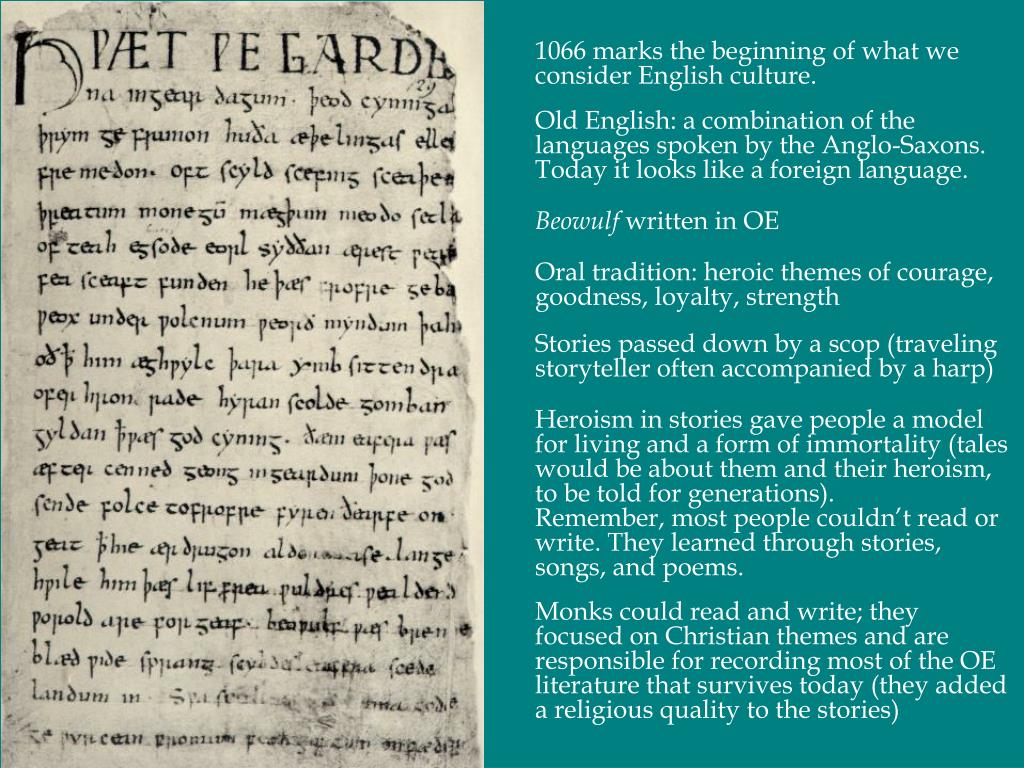 HǷÆT ǷE GARDE
na ingear dagum. þeod cyninga
þrym ge frunon huða æþelingas elle
fremedon. oft scyld scefing sceaþen
þreatum monegū mægþum meodo setla
of teah egsode eorl syððan ærest ƿear
fea sceaft funden he þæs frofre geba
ƿeox under ƿolcnum ƿeorð myndum þah
oð ꝥ him æghƿylc þara ymb sittendra
ofer hron rade hyran scolde gomban
gyldan ꝥ ƿæs god cyning. ðæm eafera ƿæs
æfter cenned geong ingeardum þone god
sende folce tofrofre fyren ðearfe on
geat ꝥ hie ær drugon lange
hƿile him þæs lif frea ƿuldres ƿealdend
ƿorold are for geaf. beoƿulf ƿæs breme
blæd ƿide sprang scyldes eafera scede
landum in
ge ƿyrcean fromum
1066 marks the beginning of what we
consider English culture.
Old English: a combination of the
languages spoken by the Anglo-Saxons.
Today it looks like a foreign language.
Beowulf written in OE
Oral tradition: heroic themes of courage,
goodness, loyalty, strength
Stories passed down by a scop (traveling
storyteller often accompanied by a harp)
Heroism in stories gave people a model
for living and a form of immortality (tales
would be about them and their heroism,
to be told for generations).
Remember, most people couldn’t read or
write. They learned through stories,
songs, and poems.
Monks could read and write; they
focused on Christian themes and are
responsible for recording most of the OE
literature that survives today (they added
a religious quality to the stories)